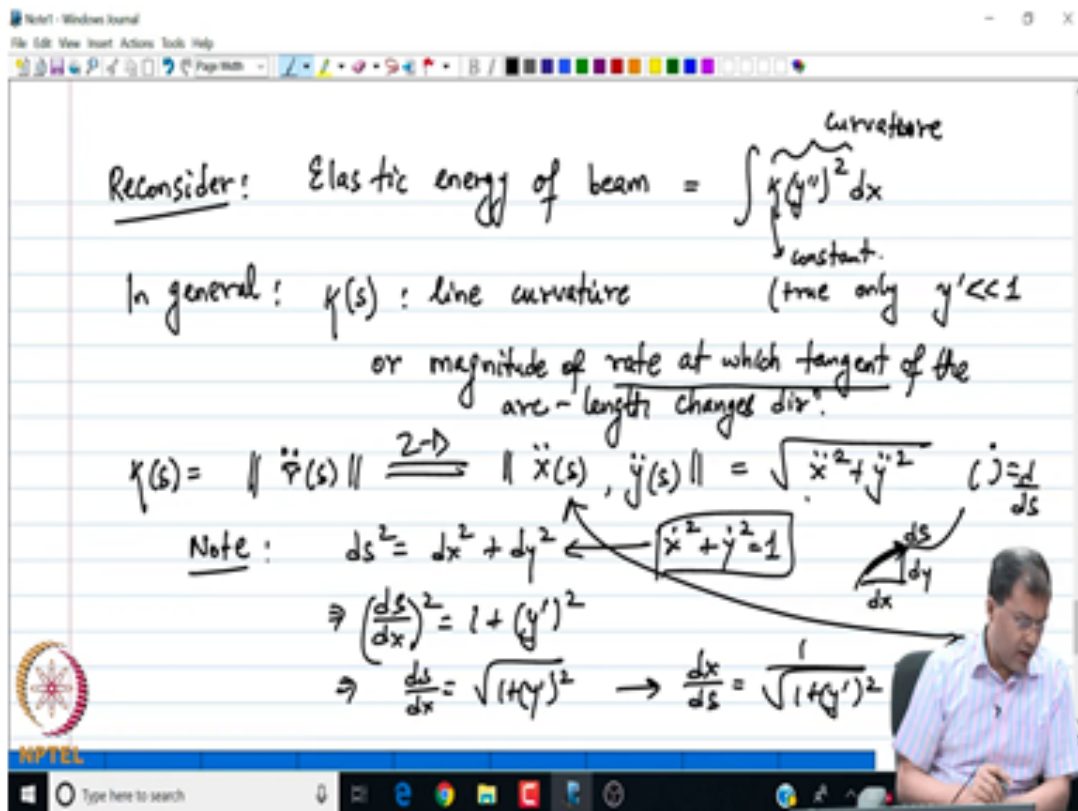 Note1 - Windows Journal
File Edit View Insert Actions Tools Help
Page Width
curvature
Reconsider: Elastic energy of beam = ∫ K(y'')² dx
constant.
In general: K(s) : line curvature (true only y' << 1
or magnitude of rate at which tangent of the
arc-length changes dirⁿ.
K(s) = || r̈(s) || 2-D || ẍ(s), ÿ(s) || = √(ẍ² + ÿ²) (˙) = d/ds
Note: ds² = dx² + dy² ← ẋ² + ẏ² = 1
ds
dy
dx
⇒ (ds/dx)² = 1 + (y')²
⇒ ds/dx = √(1+(y')²) → dx/ds = 1/√(1+(y')²)
NPTEL
Type here to search